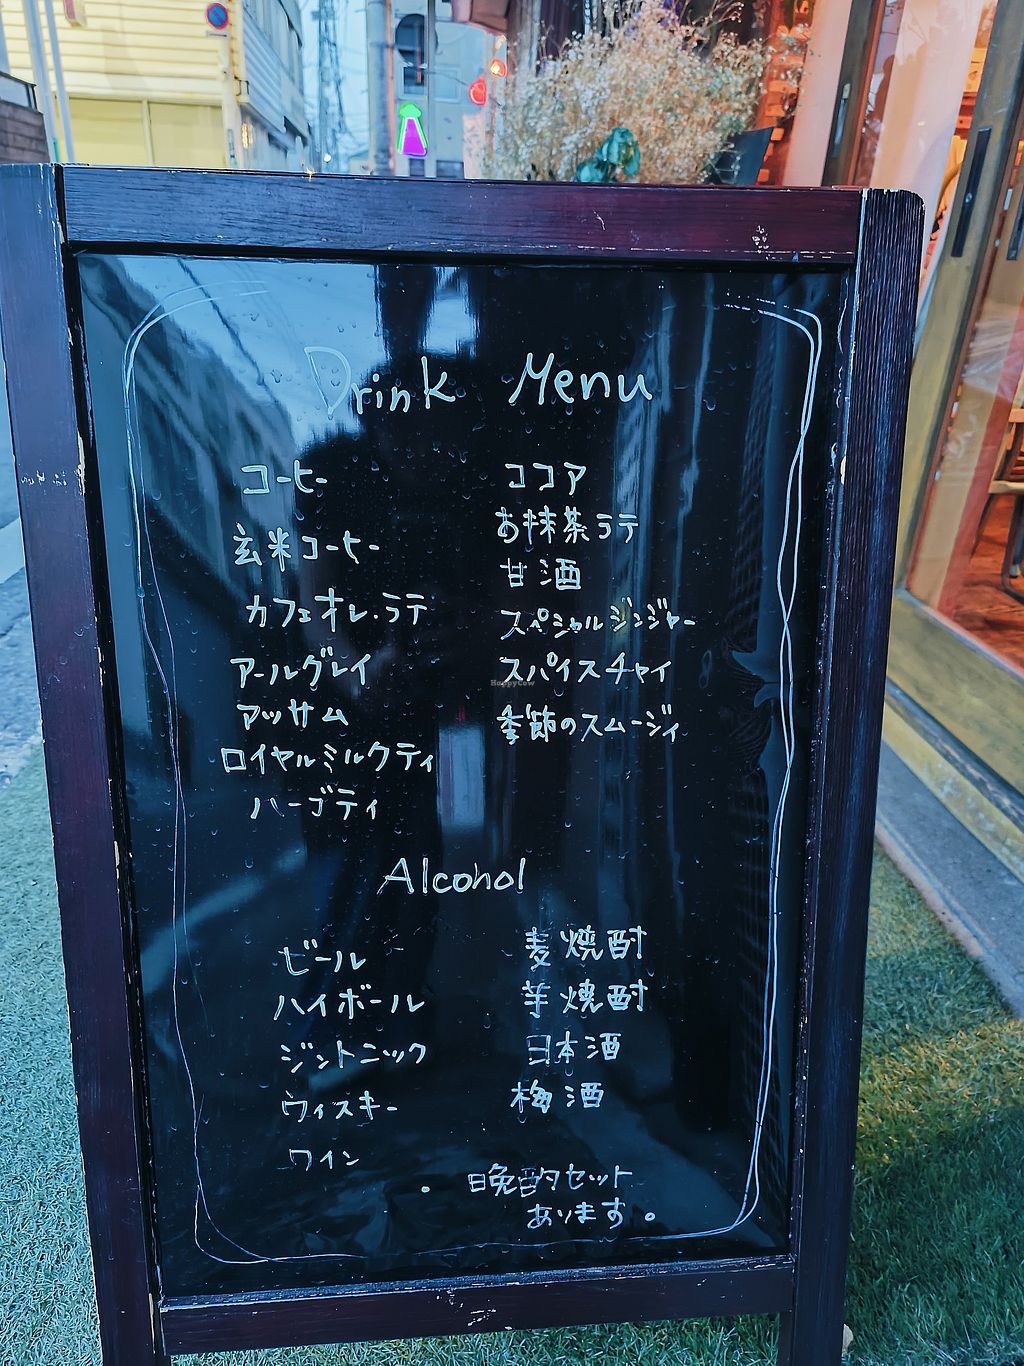 Drink Menu
コーヒー
玄米コーヒー
カフェオレ・ラテ
アールグレイ
アッサム
ロイヤルミルクティ
ハーブティ
ココア
お抹茶ラテ
甘酒
スペシャルジンジャー
スパイスチャイ
季節のスムージィ
HappyCow
Alcohol
ビール
ハイボール
ジントニック
ウィスキー
ワイン
麦焼酎
芋焼酎
日本酒
梅酒
・晩酌セット
あります。